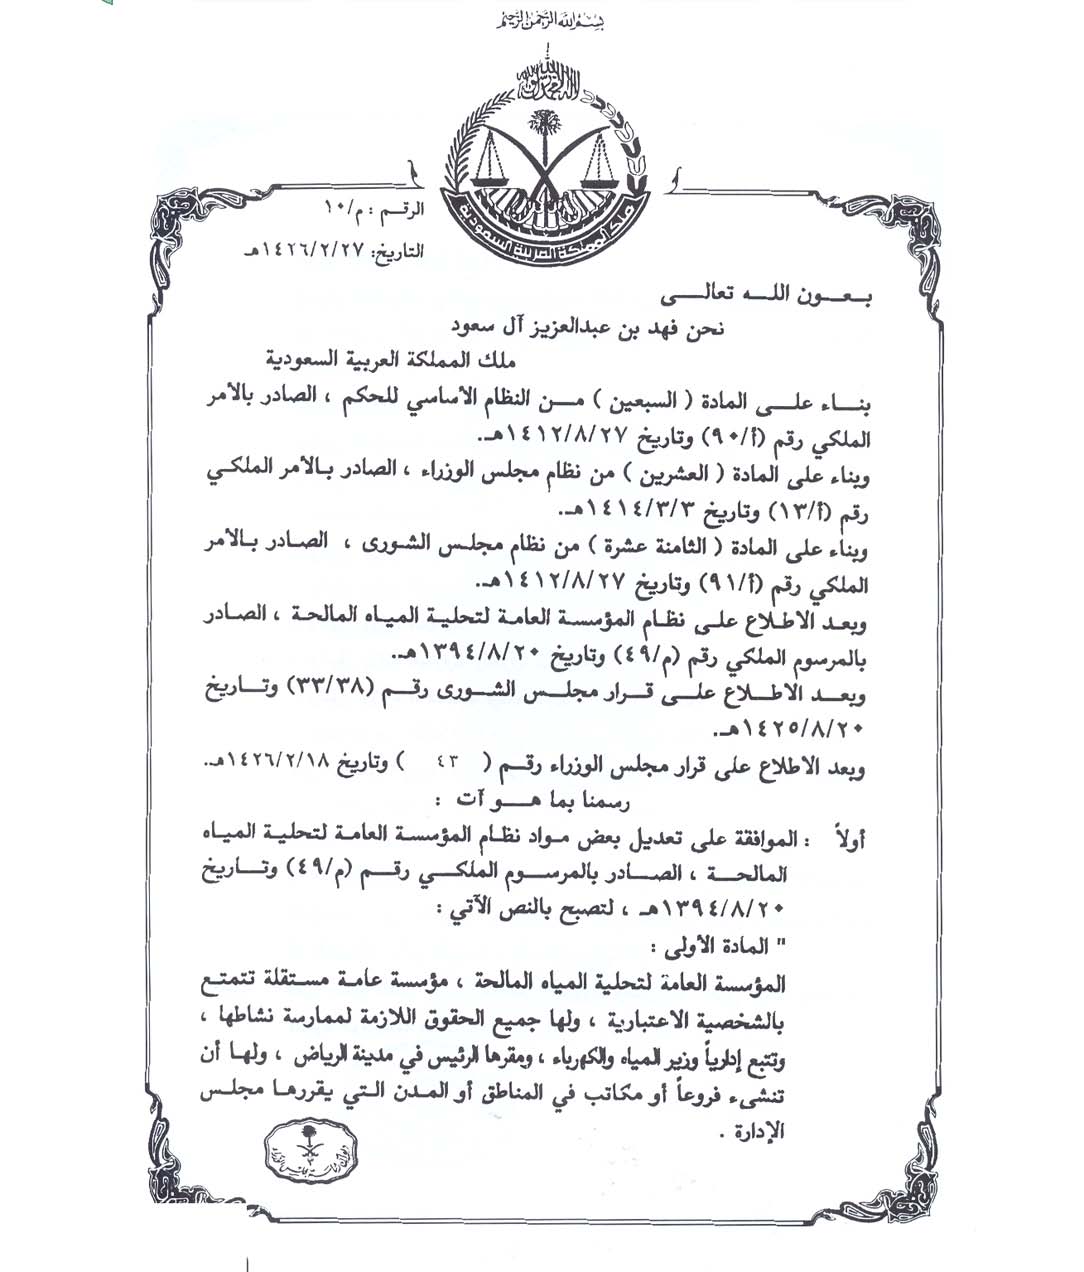 بسم الله الرحمن الرحيم
لا إله إلا الله محمد رسول الله
ملك المملكة العربية السعودية
الرقم : م/١٠
التاريخ: ١٤٢٦/٢/٢٧هـ
بعون الله تعالى
نحن فهد بن عبدالعزيز آل سعود
ملك المملكة العربية السعودية
بناء على المادة ( السبعين ) من النظام الأساسي للحكم ، الصادر بالأمر
الملكي رقم (أ/٩٠) وتاريخ ١٤١٢/٨/٢٧هـ.
وبناء على المادة ( العشرين ) من نظام مجلس الوزراء ، الصادر بالأمر الملكي
رقم (أ/١٣) وتاريخ ١٤١٤/٣/٣هـ.
وبناء على المادة ( الثامنة عشرة ) من نظام مجلس الشورى ، الصادر بالأمر
الملكي رقم (أ/٩١) وتاريخ ١٤١٢/٨/٢٧هـ.
وبعد الاطلاع على نظام المؤسسة العامة لتحلية المياه المالحة ، الصادر
بالمرسوم الملكي رقم (م/٤٩) وتاريخ ١٣٩٤/٨/٢٠هـ.
وبعد الاطلاع على قرار مجلس الشورى رقم (٣٣/٣٨) وتاريخ
١٤٢٥/٨/٢٠هـ.
وبعد الاطلاع على قرار مجلس الوزراء رقم ( ٤٣ ) وتاريخ ١٤٢٦/٢/١٨هـ.
رسمنا بما هو آت :
أولاً : الموافقة على تعديل بعض مواد نظام المؤسسة العامة لتحلية المياه
المالحة ، الصادر بالمرسوم الملكي رقم (م/٤٩) وتاريخ
١٣٩٤/٨/٢٠هـ ، لتصبح بالنص الآتي :
" المادة الأولى :
المؤسسة العامة لتحلية المياه المالحة ، مؤسسة عامة مستقلة تتمتع
بالشخصية الاعتبارية ، ولها جميع الحقوق اللازمة لممارسة نشاطها ،
وتتبع إدارياً وزير المياه والكهرباء ، ومقرها الرئيس في مدينة الرياض ، ولها أن
تنشىء فروعاً أو مكاتب في المناطق أو المدن التي يقررها مجلس
الإدارة .